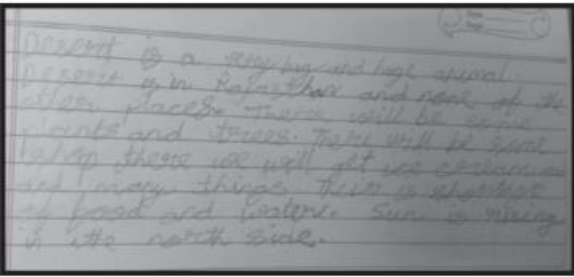 Desert is a very big and huge animal
Desert is in Rajasthan and none of the
other places. There will be some
plants and trees. There will be some
shop there we will get ice cream
and many things their is shortest
of food and water. Sun is rising
in the north side.